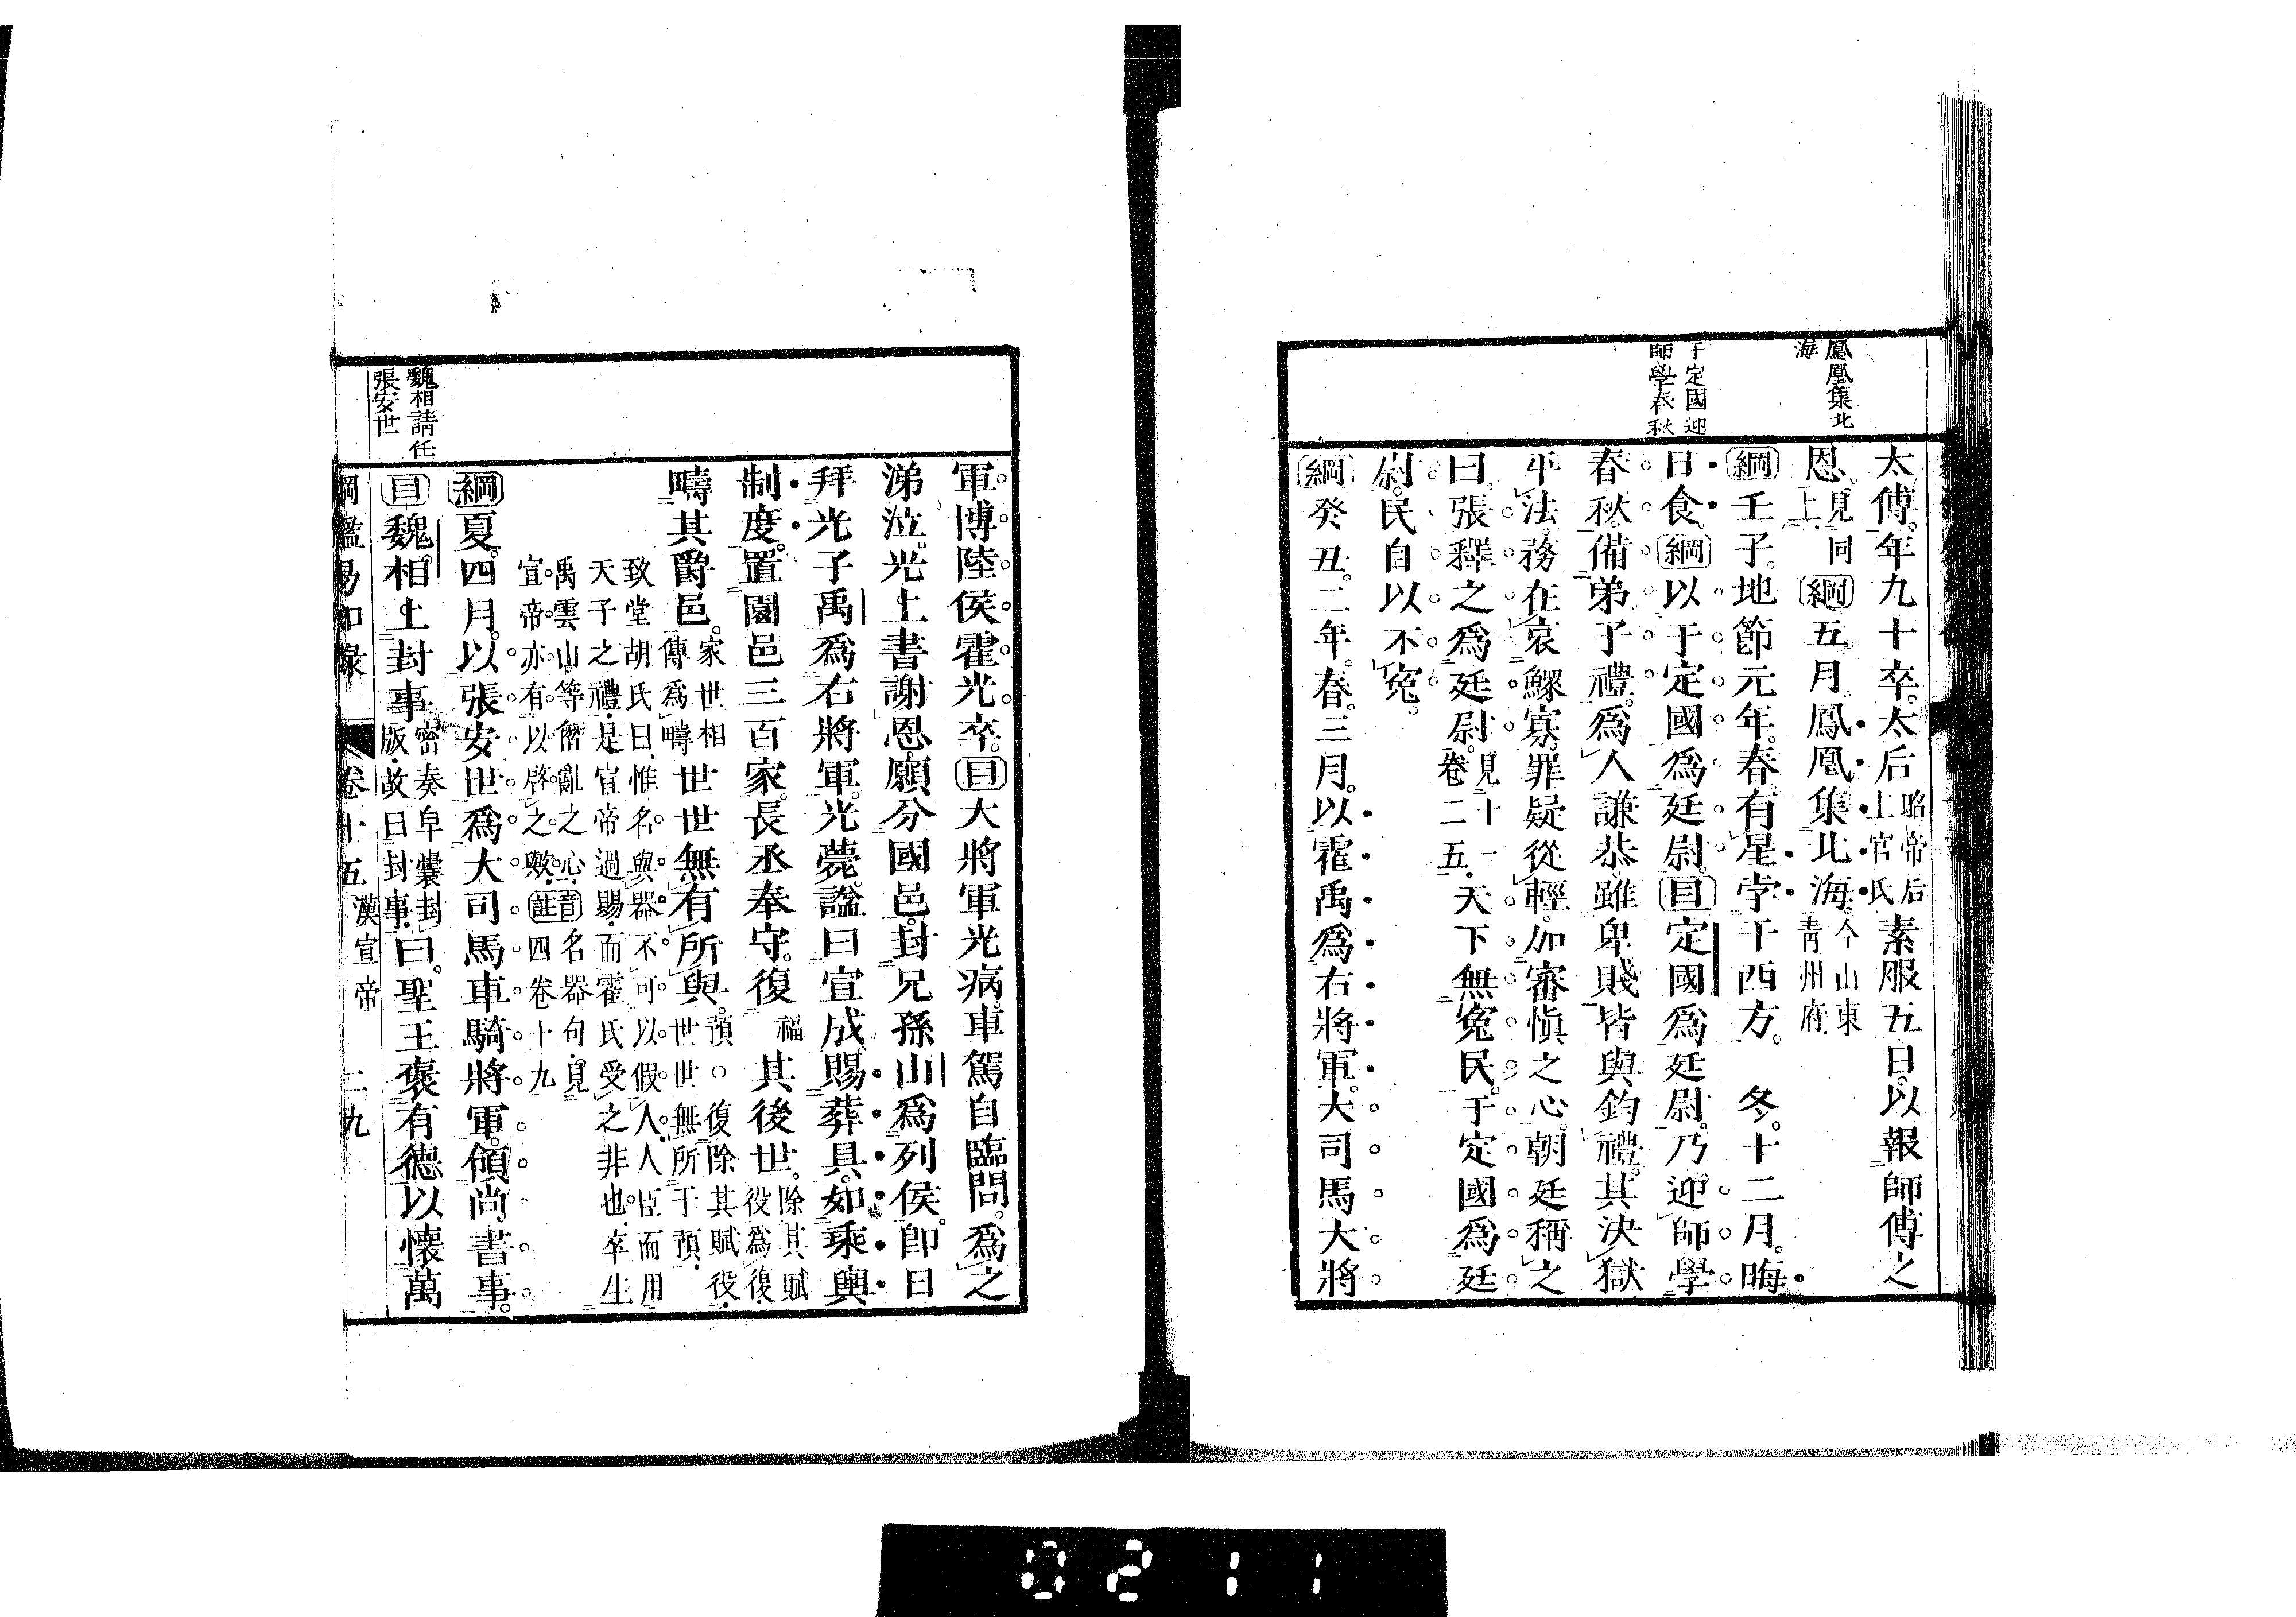 鳳凰集北
海
于定國迎
師學春秋
太傅年九十卒太后昭帝后上官氏素服五日以報師傅之
恩見同上綱五月鳳凰集北海今山東青州府
綱壬子地節元年春有星孛于西方 冬十二月晦
日食綱以于定國爲廷尉目定國爲廷尉乃迎師學
春秋備弟子禮爲人謙恭雖卑賤皆與鈞禮其決獄
平法務在哀鰥寡罪疑從輕加審愼之心朝廷稱之
曰張釋之爲廷尉見十一卷二五天下無寃民于定國爲廷
尉民自以不寃
綱癸丑二年春三月以霍禹爲右將軍大司馬大將
魏相請任
張安世
軍博陸侯霍光卒目大將軍光病車駕自臨問爲之
涕泣光上書謝恩願分國邑封兄孫山爲列侯卽日
拜光子禹爲右將軍光薨諡曰宣成賜葬具如乘輿
制度置園邑三百家長丞奉守復福其後世除其賦役爲復
疇其爵邑家世相傳爲疇世世無有所與預○復除其賦役世世無所干預
致堂胡氏曰惟名與器不可以假人人臣而用
天子之禮是宣帝過賜而霍氏受之非也卒生
禹雲山等僭亂之心音名器句見
宣帝亦有以啓之歟註四卷十九
綱夏四月以張安世爲大司馬車騎將軍領尚書事
目魏相上封事密奏皁囊封版故曰封事曰聖王褒有德以懷萬
綱鑑易知錄 卷十五 漢宣帝 二九
0211